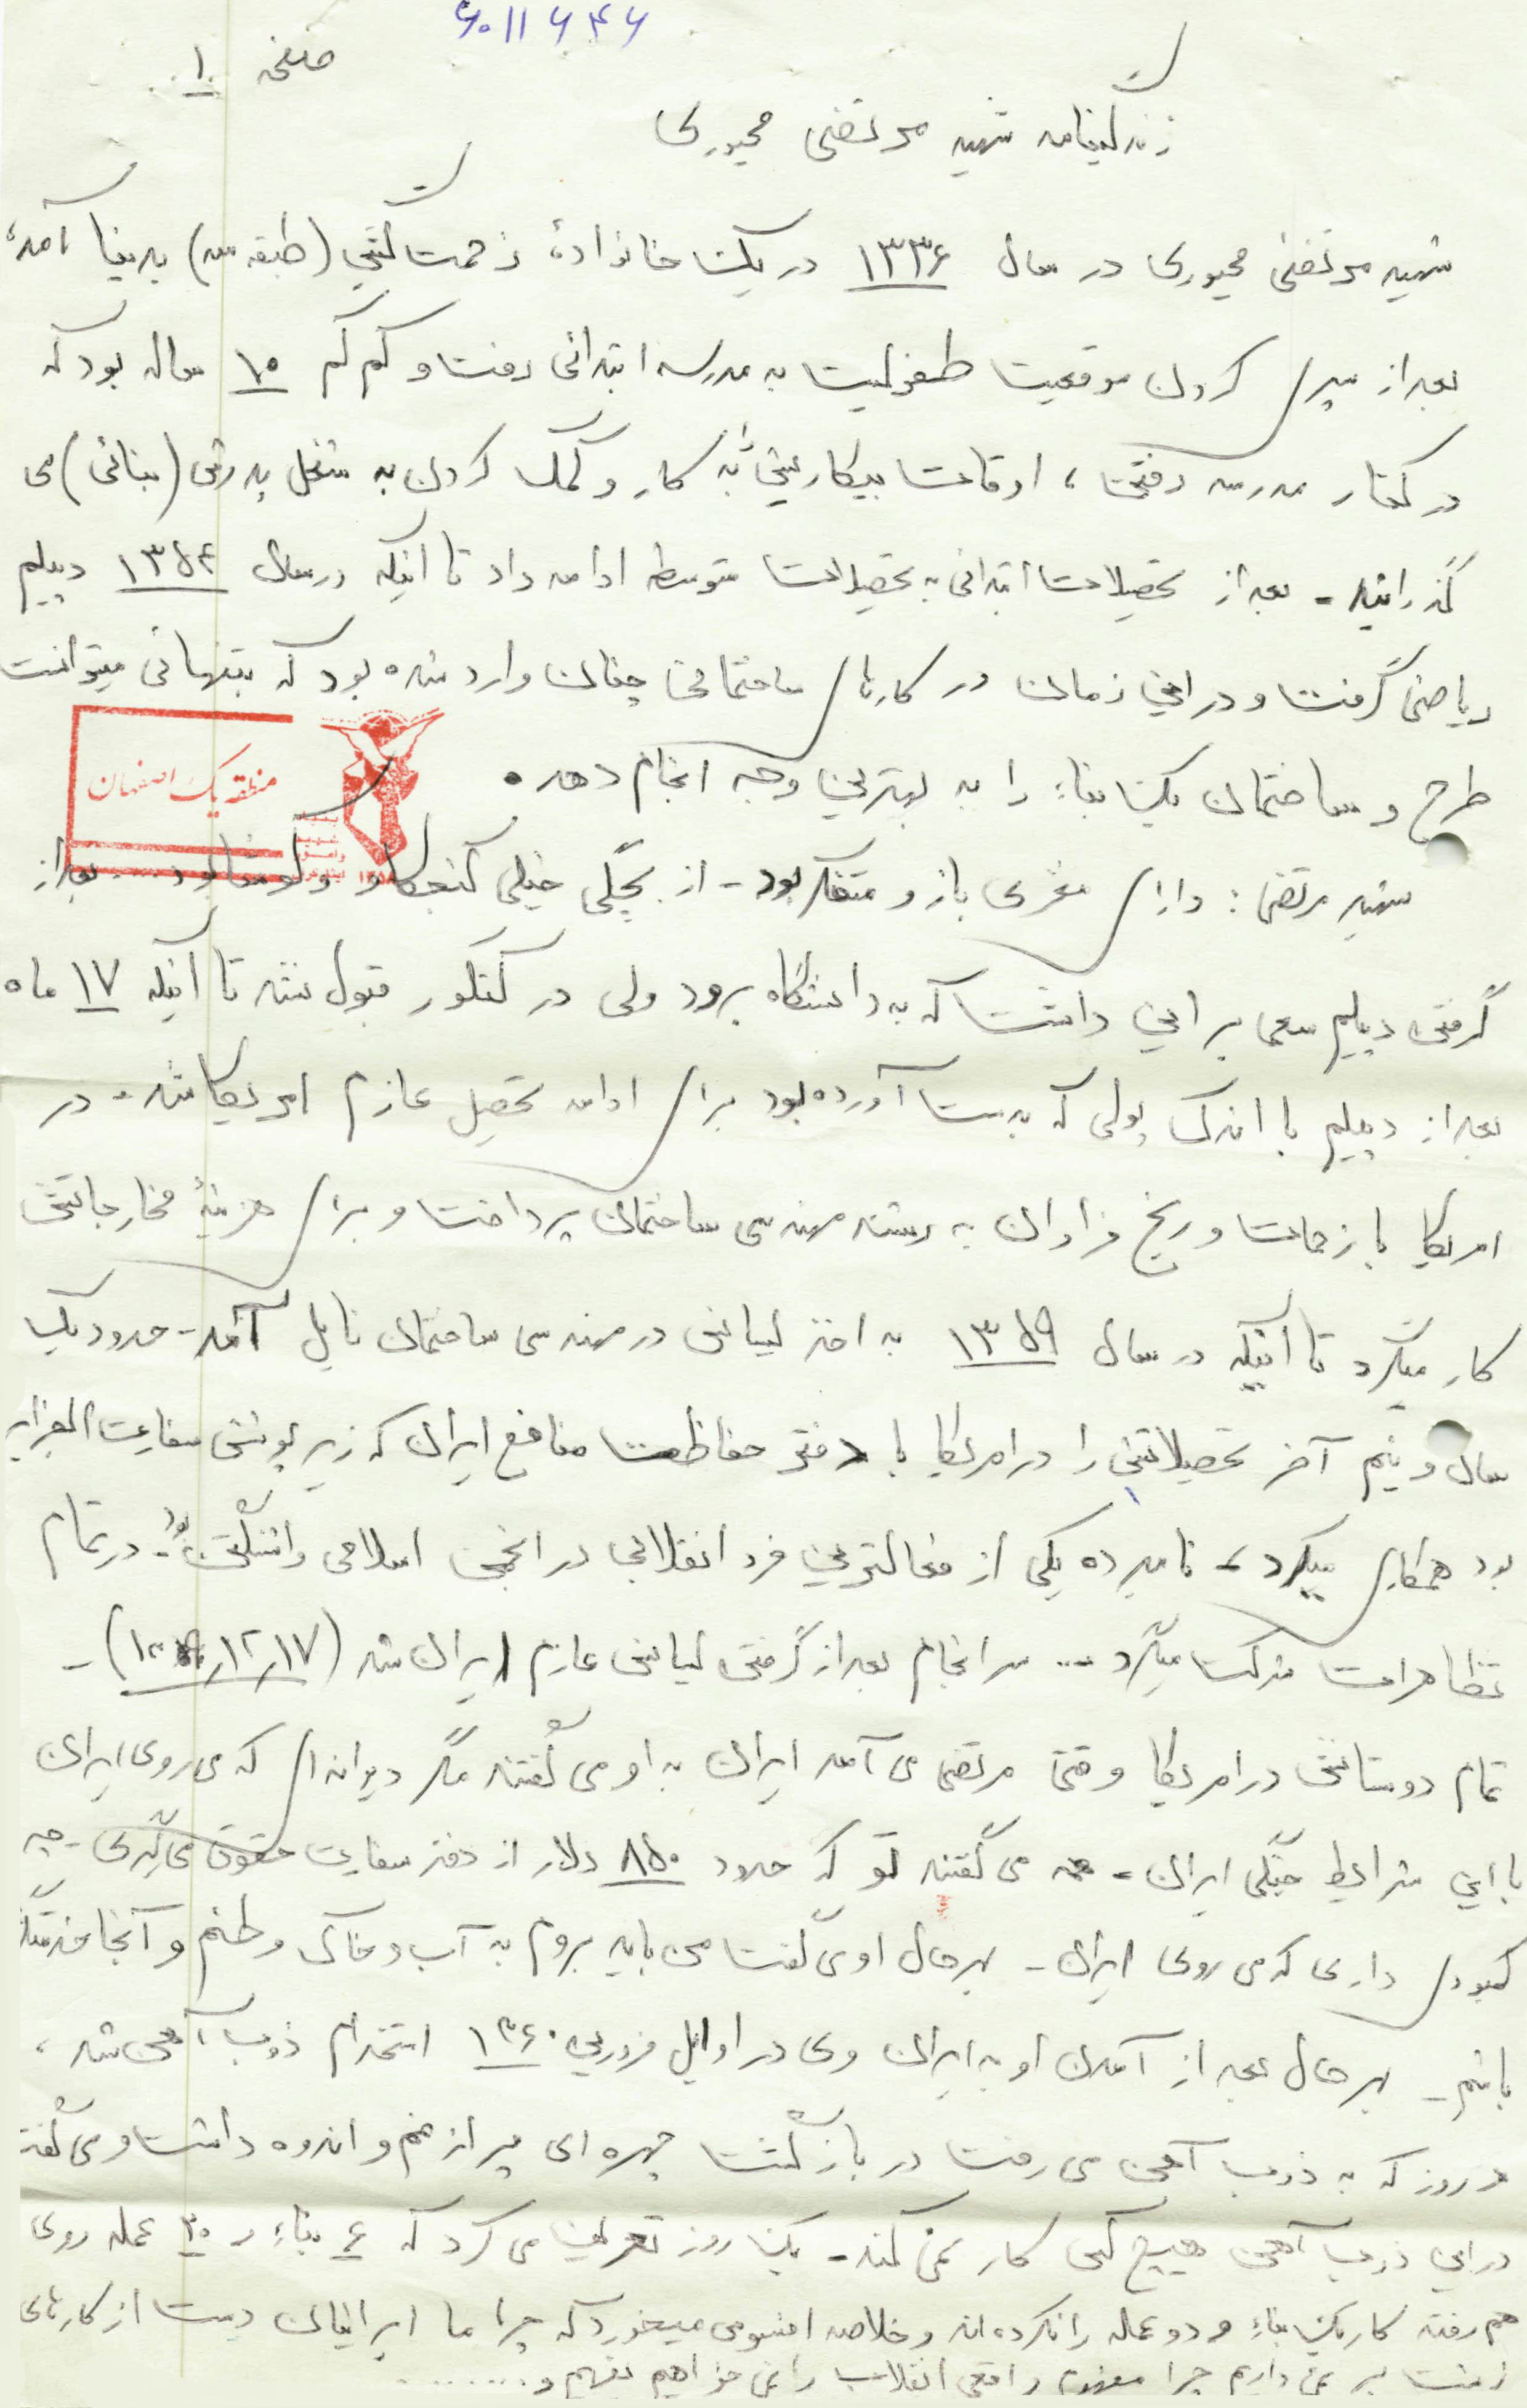 ۶۰۱۱۶۴۶
صفحه ۱
زندگینامه شهید مرتضی مجبوری
شهید مرتضی مجبوری در سال ۱۳۳۶ در یک خانوادهٔ زحمت کشی (طبقه سه) بدنیا آمد،
بعد از سپری کردن موقعیت طفولیت به مدرسه ابتدائی رفت و کم کم ۱۰ ساله بود که
در کنار مدرسه رفتن، اوقات بیکاریش به کار و کمک کردن به شغل پدرش (بنائی) می
گذرانید - بعد از تحصیلات ابتدائی به تحصیلات متوسطه ادامه داد تا اینکه در سال ۱۳۵۴ دیپلم
ریاضی گرفت و در این زمان در کارهای ساختمانی چنان وارد شده بود که بتنهائی میتوانست
طرح و ساختمان یک بناء را به بهترین وجه انجام دهد.
منطقه یک اصفهان
شهید مرتضی: دارای مغزی باز و متفکر بود - از بچگی خیلی کنجکاو و بود ... بعد از
گرفتن دیپلم سعی بر این داشت که به دانشگاه برود ولی در کنکور قبول نشد تا اینکه ۱۷ ماه
بعد از دیپلم با اندک پولی که بدست آورده بود برای ادامه تحصیل عازم امریکا شد. در
امریکا با زحمات و رنج فراوان به رشته مهندسی ساختمان پرداخت و برای هزینهٔ مخارجاتش
کار میکرد تا اینکه در سال ۱۳۵۹ به اخذ لیسانس در مهندسی ساختمان نایل آمد - حدود یک
سال و نیم آخر تحصیلاتش را در امریکا با دفتر حفاظت منافع ایران که زیر پوشش سفارت الجزایر
بود همکاری میکرد، نامبرده یکی از فعالترین فرد انقلابی در انجمن اسلامی واشنگتن بود - در تمام
تظاهرات شرکت میکرد ... سرانجام بعد از گرفتن لیسانس عازم ایران شد (۱۷ر۱۲ر۵۹) -
تمام دوستانش در امریکا وقتی مرتضی می آمد ایران به او می گفتند مگر دیوانه ای که می روی ایران
با این شرایط جنگی ایران - همه می گفتند تو که حدود ۸۵۰ دلار از دفتر سفارت حقوق می گیری - چه
کمبودی داری که می روی ایران - بهرحال او می گفت من باید بروم به آب و خاک وطنم و آنجا خدمتگذار
باشم - بهرحال بعد از آمدن او به ایران وی در اوایل فروردین ۱۳۶۰ استخدام ذوب آهن شد،
هر روز که به ذوب آهن می رفت در بازگشت چهره ای پر از غم و اندوه داشت و می گفت
در این ذوب آهن هیچ کس کار نمی کند - یک روز تعریف می کرد که ۶ بناء و ۳۰ عمله روی
هم رفته کار یک بناء و دو عمله را نکرده اند و خلاصه افسوس میخورد که چرا ما ایرانیان دست از کارهای
زشت بر نمی داریم چرا مفهوم واقعی انقلاب را نمی خواهیم بفهمیم و ........